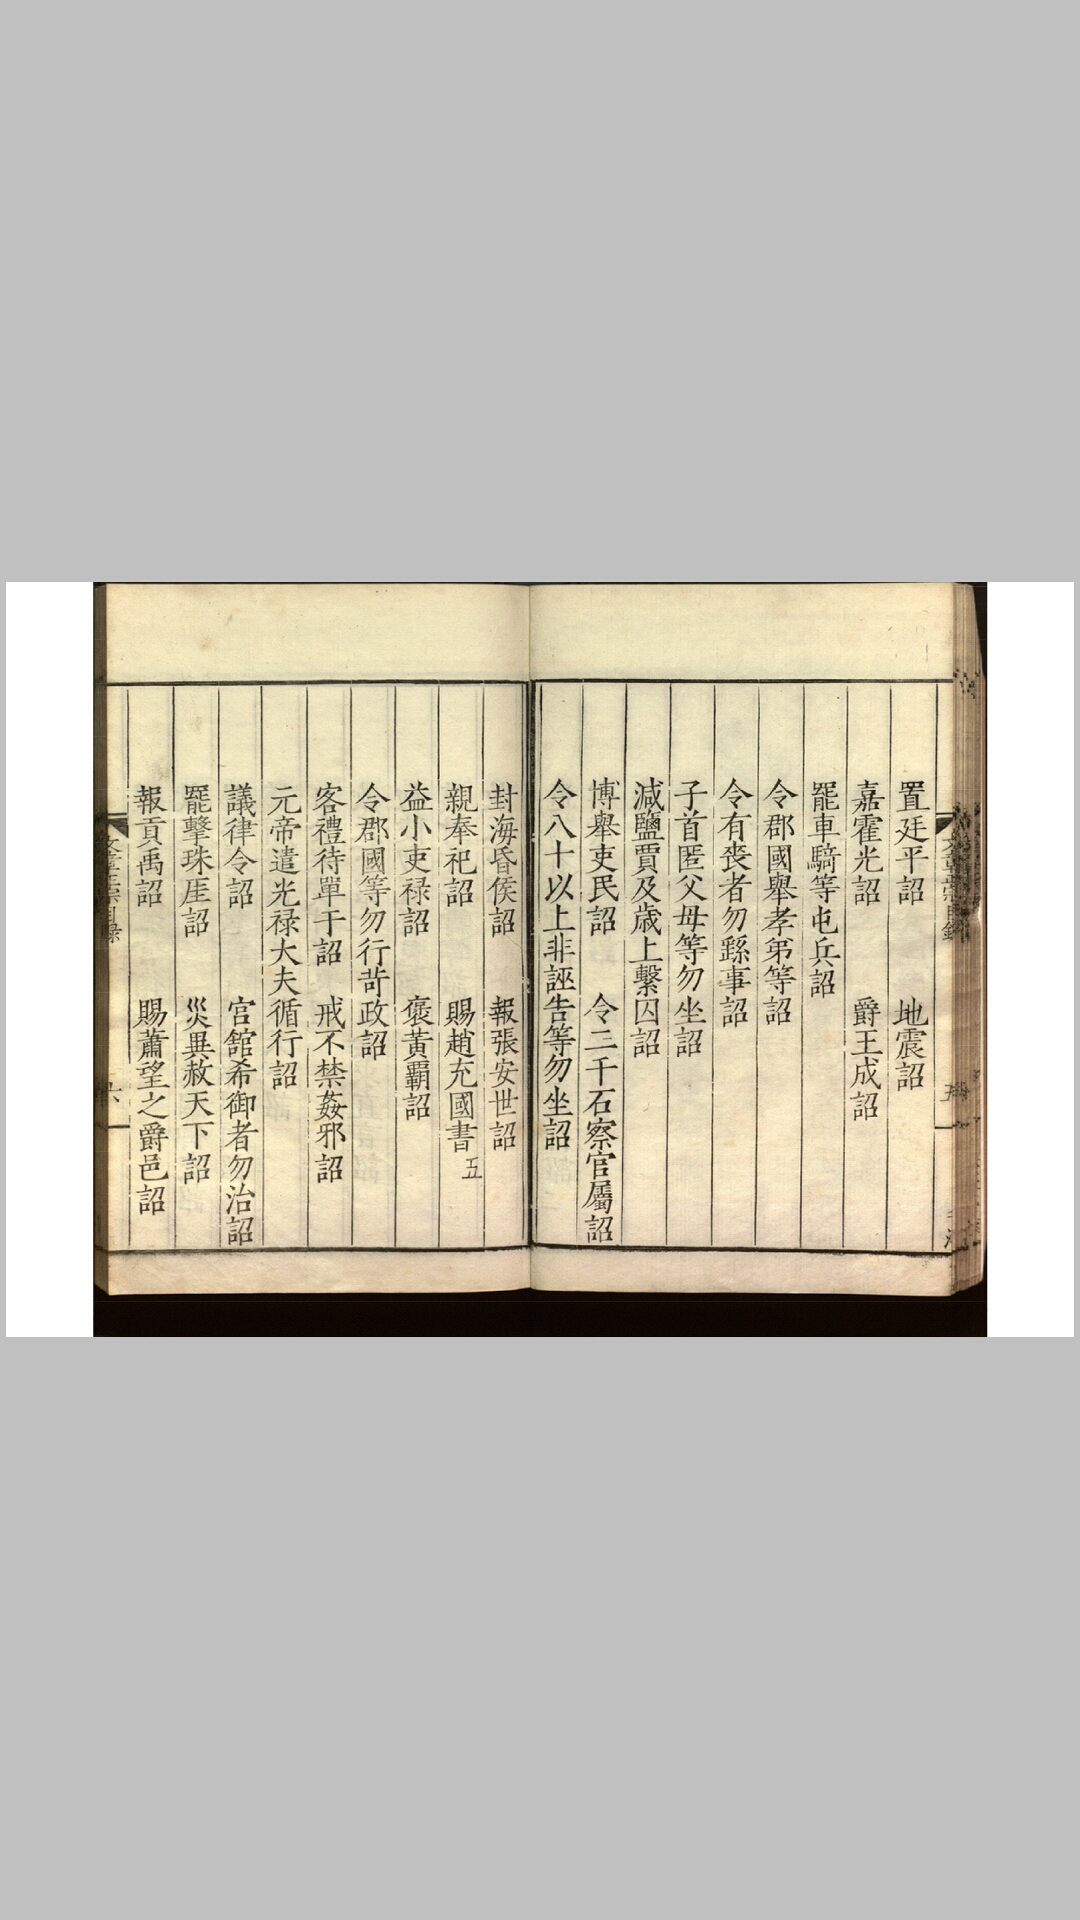 置廷平詔　地震詔
嘉霍光詔　爵王成詔
罷車騎等屯兵詔
令郡國舉孝弟等詔
令有喪者勿繇事詔
子首匿父母等勿坐詔
減鹽賈及歲上繫囚詔
博舉吏民詔　令二千石察官屬詔
令八十以上非誣告等勿坐詔
封海昏侯詔　報張安世詔
親奉祀詔　賜趙充國書五
益小吏祿詔　襃黃霸詔
令郡國等勿行苛政詔
客禮待單于詔　戒不禁姦邪詔
元帝遣光祿大夫循行詔
議律令詔　宮館希御者勿治詔
罷擊珠厓詔　災異赦天下詔
報貢禹詔　賜蕭望之爵邑詔
六